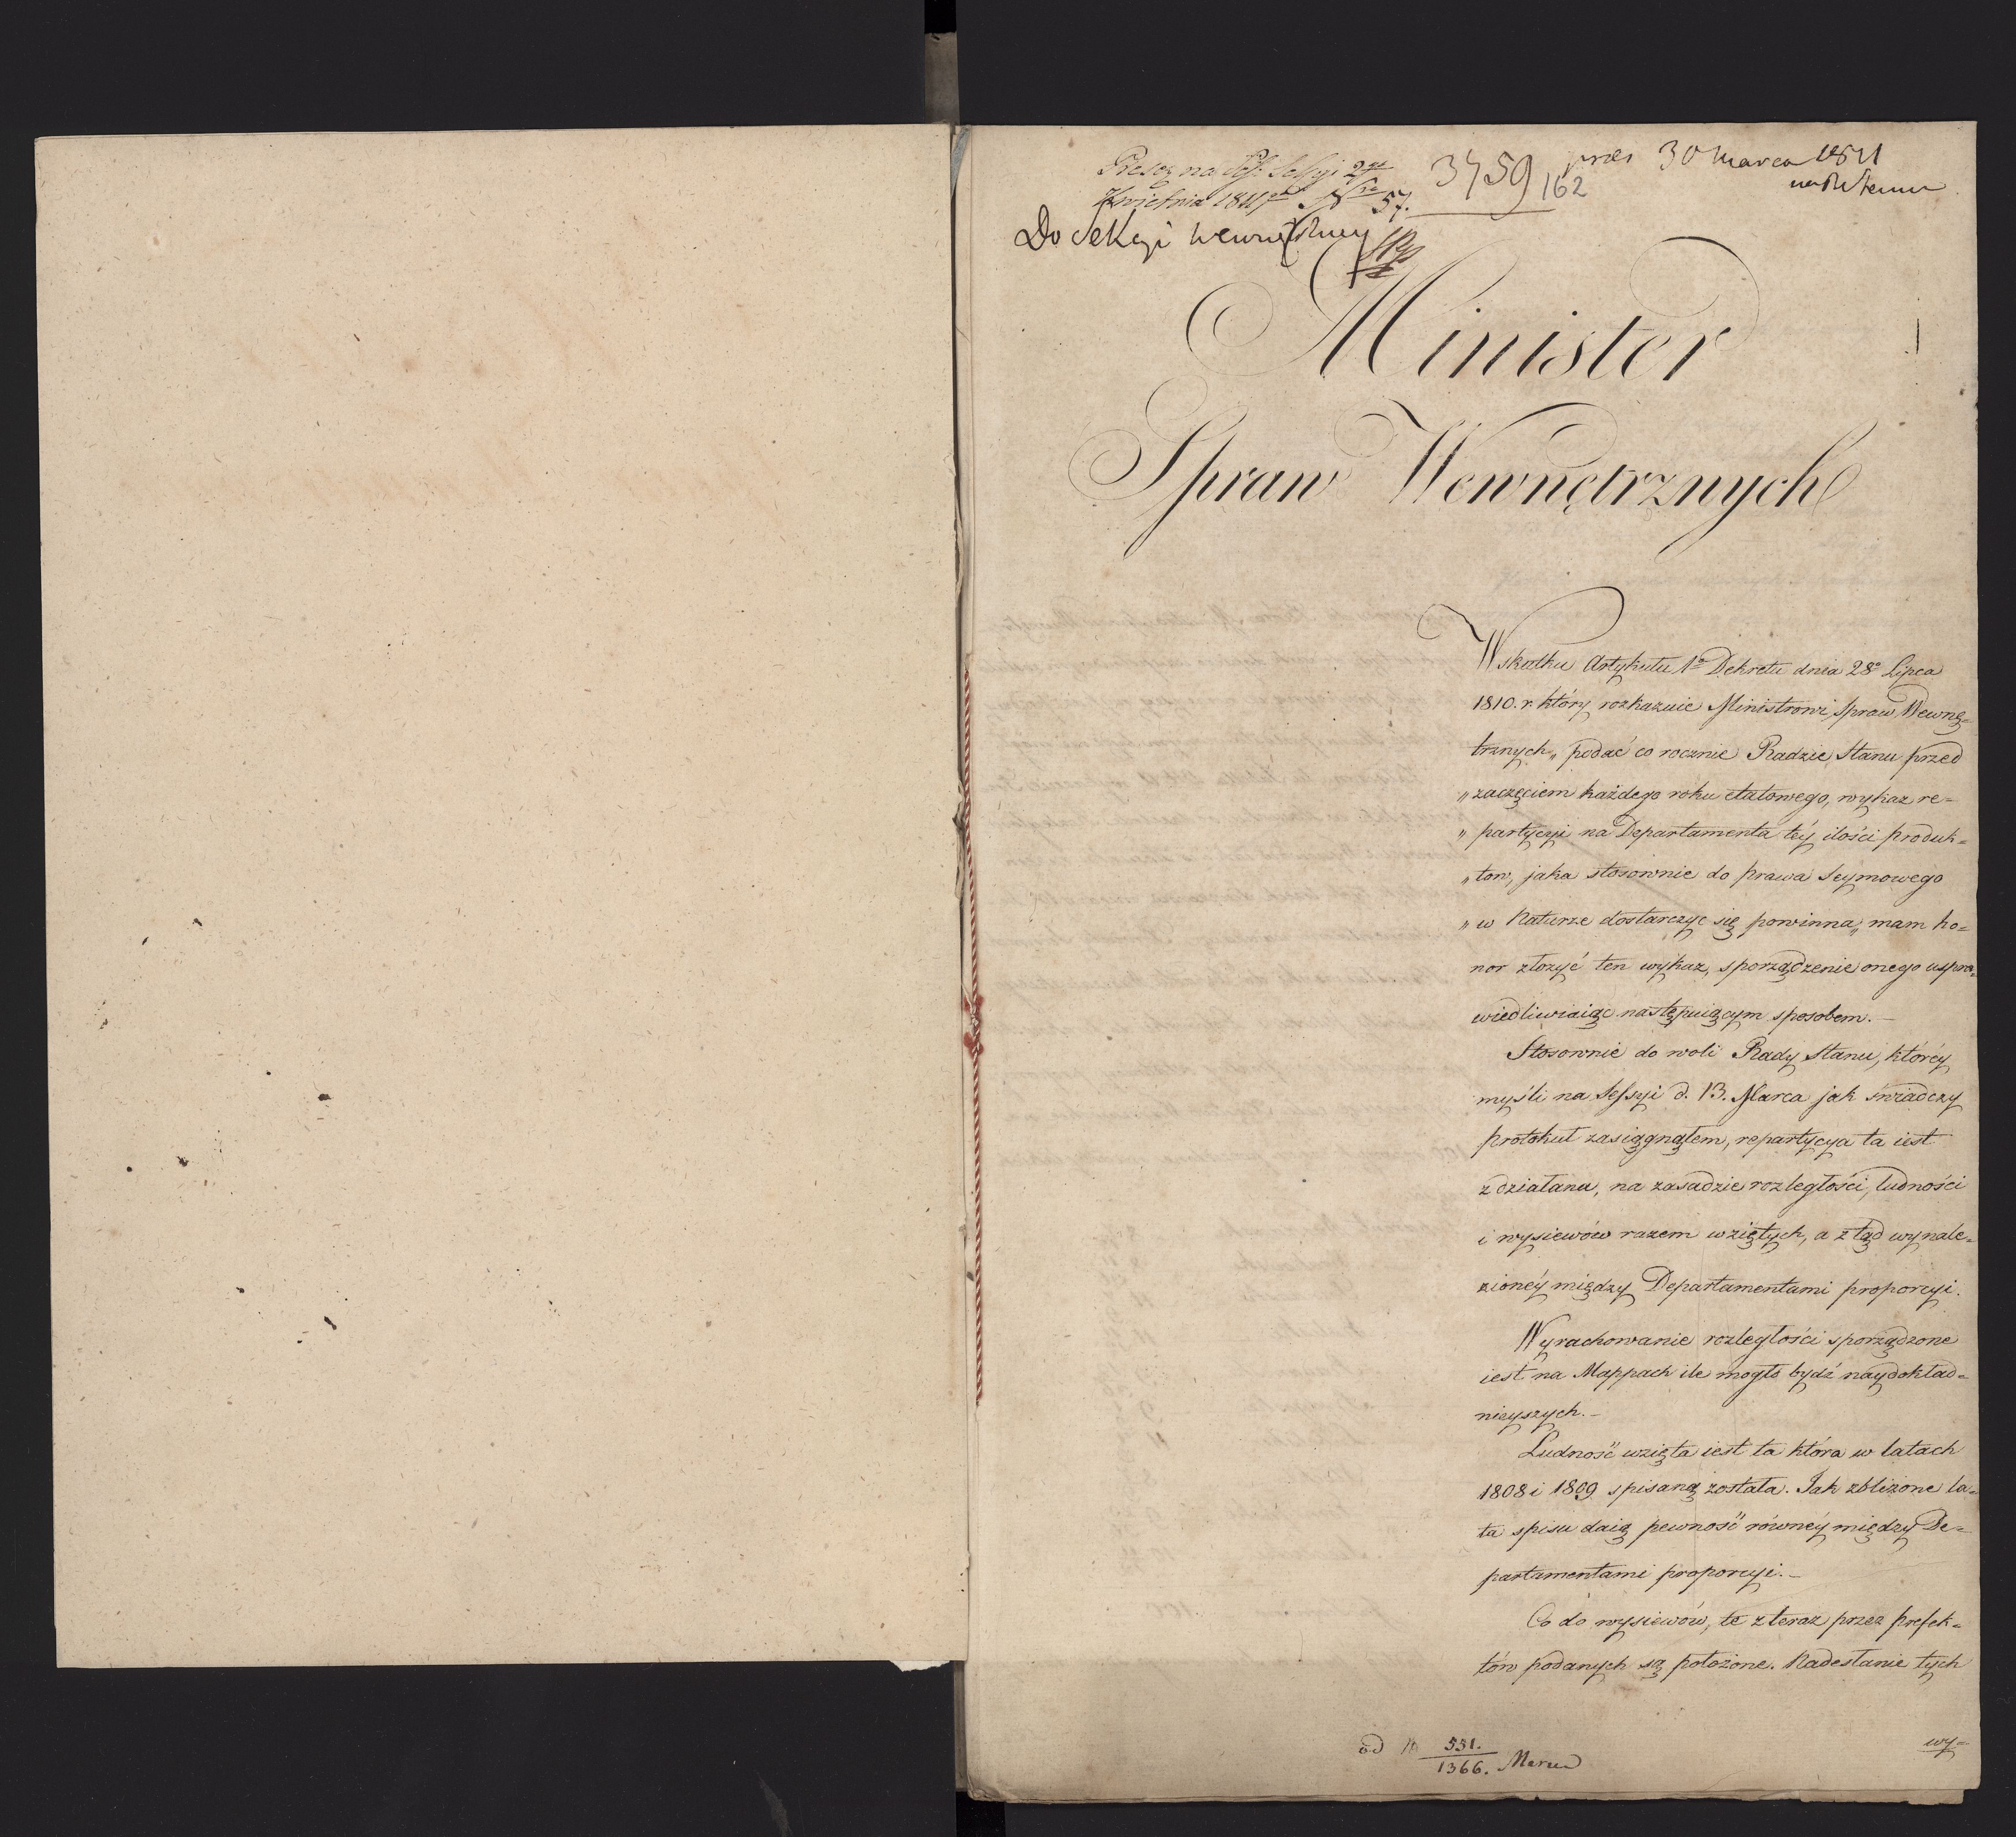 Kwietnia 1811 Nro 57.
3759
162
pres 30 marca 1811
Do Sekcyi wewnętrzney
Minister
Spraw Wewnętrznych
Wskutku Artykułu 1o Dekretu dnia 28o Lipca
1810. r. który rozkazuie Ministrowi Spraw Wewnę=
trznych „ podać co rocznie Radzie Stanu przed
„ zaczęciem każdego roku etatowego, wykaz re=
„ partycyi na Departamenta téy ilości produk=
„ tow, jaka stosownie do prawa Seymowego
„ w Naturze dostarczyc się powinna „ mam ho=
nor złożyć ten wykaz, sporządzenie onego uspra=
wiedliwiaiąc następuiącym sposobem. —
Stosownie do woli Rady Stanu, któréy
myśli na Sessyi d. 13. Marca jak świadczy
protokuł zasiągnąłem, repartycya ta iest
zdziałana, na zasadzie rozległości, ludności
i wysiewów razem wziętych, a z tąd wynale=
zionéy między Departamentami proporcyi.
Wyrachowanie rozległości sporządzone
iest na Mappach ile mogło bydź naydokład=
nieyszych. —
Ludność wzięta iest ta która w latach
1808 i 1809 spisaną została. Jak zbliżone la=
ta spisu daią pewność równéy między De=
partamentami proporcyi. —
Co do wysiewów, te z teraz przez prefek=
tów podanych są położone. Nadesłanie tych
wy=
od N 551.
1366. Marca